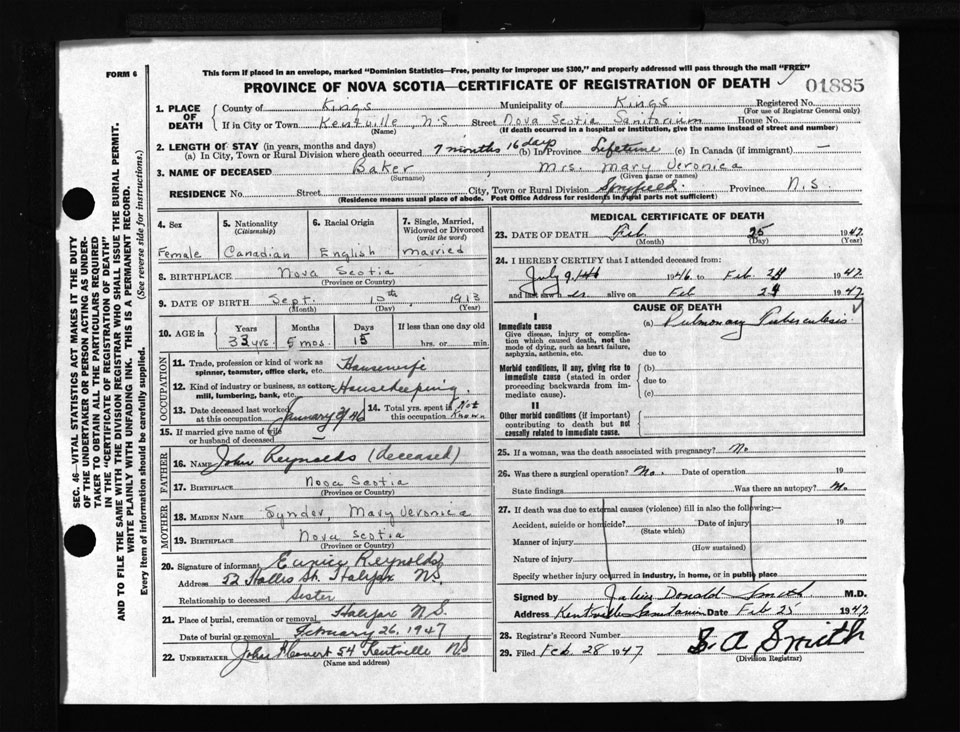 FORM 6
This form if placed in an envelope, marked "Dominion Statistics—Free, penalty for improper use $300," and properly addressed will pass through the mail "FREE"
PROVINCE OF NOVA SCOTIA—CERTIFICATE OF REGISTRATION OF DEATH
01885
1. PLACE OF DEATH
County of Kings Municipality of Kings Registered No.
(For use of Registrar General only)
If in City or Town Kentville N.S Street Nova Scotia Sanitorium House No.
(Name) (If death occurred in a hospital or institution, give the name instead of street and number)
2. LENGTH OF STAY (in years, months and days)
(a) In City, Town or Rural Division where death occurred 7 months 16 days (b) In Province Lifetime (c) In Canada (if immigrant) —
3. NAME OF DECEASED Baker, Mrs. Mary Veronica
(Surname) (Given name or names)
RESIDENCE No. Street City, Town or Rural Division Province N.S
(Residence means usual place of abode. Post Office Address for residents in rural parts not sufficient)
SEC. 46—VITAL STATISTICS ACT MAKES IT THE DUTY
OF THE UNDERTAKER OR PERSON ACTING AS UNDER-
TAKER TO OBTAIN ALL THE PARTICULARS REQUIRED
IN THE "CERTIFICATE OF REGISTRATION OF DEATH"
AND TO FILE THE SAME WITH THE DIVISION REGISTRAR WHO SHALL ISSUE THE BURIAL PERMIT.
WRITE PLAINLY WITH UNFADING INK. THIS IS A PERMANENT RECORD.
Every item of information should be carefully supplied. (See reverse side for instructions.)
4. Sex
Female
5. Nationality
(Citizenship)
Canadian
6. Racial Origin
English
7. Single, Married, Widowed or Divorced
(write the word)
Married
8. BIRTHPLACE Nova Scotia
(Province or Country)
9. DATE OF BIRTH Sept. 10th, 1913
(Month) (Day) (Year)
10. AGE in
Years Months Days If less than one day old
33 yrs. 5 mos. 15 hrs. or min.
OCCUPATION
11. Trade, profession or kind of work as
spinner, teamster, office clerk, etc. Housewife
12. Kind of industry or business, as cotton
mill, lumbering, bank, etc. Housekeeping
13. Date deceased last worked
at this occupation January 9/46
14. Total yrs. spent in
this occupation Not Known
15. If married give name of wife
or husband of deceased —
FATHER
16. NAME John Reynolds (deceased)
17. BIRTHPLACE Nova Scotia
(Province or Country)
MOTHER
18. MAIDEN NAME Synder, Mary Veronica
19. BIRTHPLACE Nova Scotia
(Province or Country)
20. Signature of informant Eunice Reynolds
Address 52 Hollis St. Halifax N.S.
Relationship to deceased Sister
21. Place of burial, cremation or removal Halifax N.S.
Date of burial or removal February 26, 1947
22. UNDERTAKER John 54 Kentville N.S
(Name and address)
MEDICAL CERTIFICATE OF DEATH
23. DATE OF DEATH Feb 25 1947
(Month) (Day) (Year)
24. I HEREBY CERTIFY that I attended deceased from:
July 9. 1946 to Feb 24 1947
and last saw h er alive on Feb 24 1947
CAUSE OF DEATH
I
Immediate cause
Give disease, injury or complica-
tion which caused death, not the
mode of dying, such as heart failure,
asphyxia, asthenia, etc.
(a) Pulmonary Tuberculosis
due to
Morbid conditions, if any, giving rise to
immediate cause (stated in order
proceeding backwards from im-
mediate cause).
(b)
due to
(c)
II
Other morbid conditions (if important)
contributing to death but not
causally related to immediate cause.
25. If a woman, was the death associated with pregnancy? No
26. Was there a surgical operation? No. Date of operation 19
State findings Was there an autopsy? No
27. If death was due to external causes (violence) fill in also the following:—
Accident, suicide or homicide? Date of injury 19
(State which)
Manner of injury
(How sustained)
Nature of injury
Specify whether injury occurred in industry, in home, or in public place
Signed by Donald Smith M.D.
Address Kentville Sanatorium Date Feb 25 1947
28. Registrar's Record Number
29. Filed Feb 28 1947 S. A Smith
(Division Registrar)